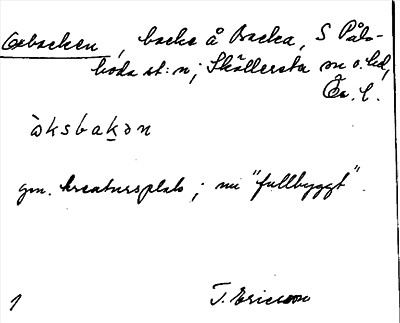 Oxbacken, backe å Backa, S Påls-
boda st:n; Sköllersta sn o. hd,
Ör. l.
òksbakən
gm. kreatursplats; nu "fullbyggt".
1 T. Ericsson